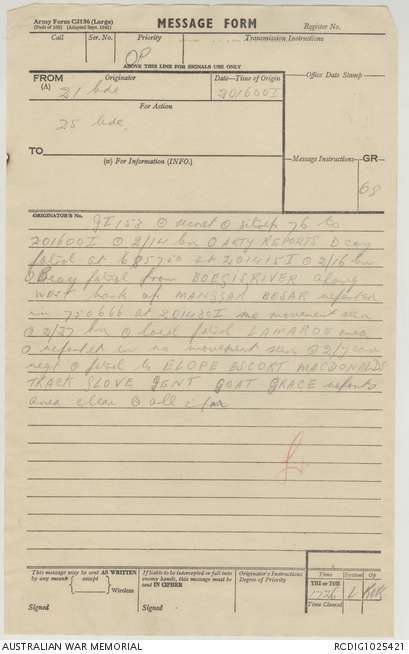 Army Form C2136 (Large)
(Pads of 100) (Adapted Sept. 1942)
MESSAGE FORM
Register No.
Call
Ser. No.
Priority
Transmission Instructions
OP
ABOVE THIS LINE FOR SIGNALS USE ONLY
FROM
(A)
Originator
Date—Time of Origin
Office Date Stamp
21 bde
201600I
For Action
25 bde
TO
(W) For Information (INFO.)
Message Instructions
GR
68
ORIGINATOR'S No.
secret O sitrep 76 to
201600I O 2/14 bn O ARTY REPORTS D coy
patrol at 685750 at 201415I O 2/16 bn
O B coy patrol from RIVER along
west bank of MANGGAR BESAR reported
in 750666 at 201430I no movement seen
O 2/27 bn O local patrol LAMAROE area
O reported in no movement seen O 2/7
regt O patrol to ELOPE ESCORT MACDONALDS
TRACK SLOVE GENT GOAT GRACE reports
area clear O all
This message may be sent AS WRITTEN
by any means except
Wireless
If liable to be intercepted or fall into
enemy hands, this message must be
sent IN CIPHER
Originator's Instructions
Degree of Priority
Time
System
Op
THI or TOR
1726
L
Time Cleared
Signed
Signed
AUSTRALIAN WAR MEMORIAL
RCDIG1025421